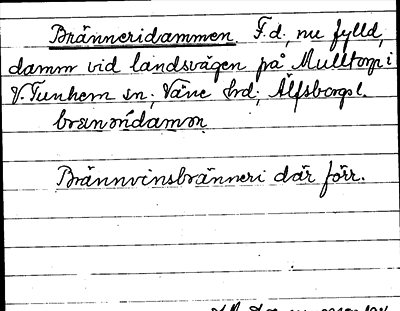 Bränneridammen. F.d., nu fylld,
damm vid landsvägen på Mulltorp i
V. Tunhem sn, Väne hrd, Älfsborgs l.
Brännvinsbränneri där förr.